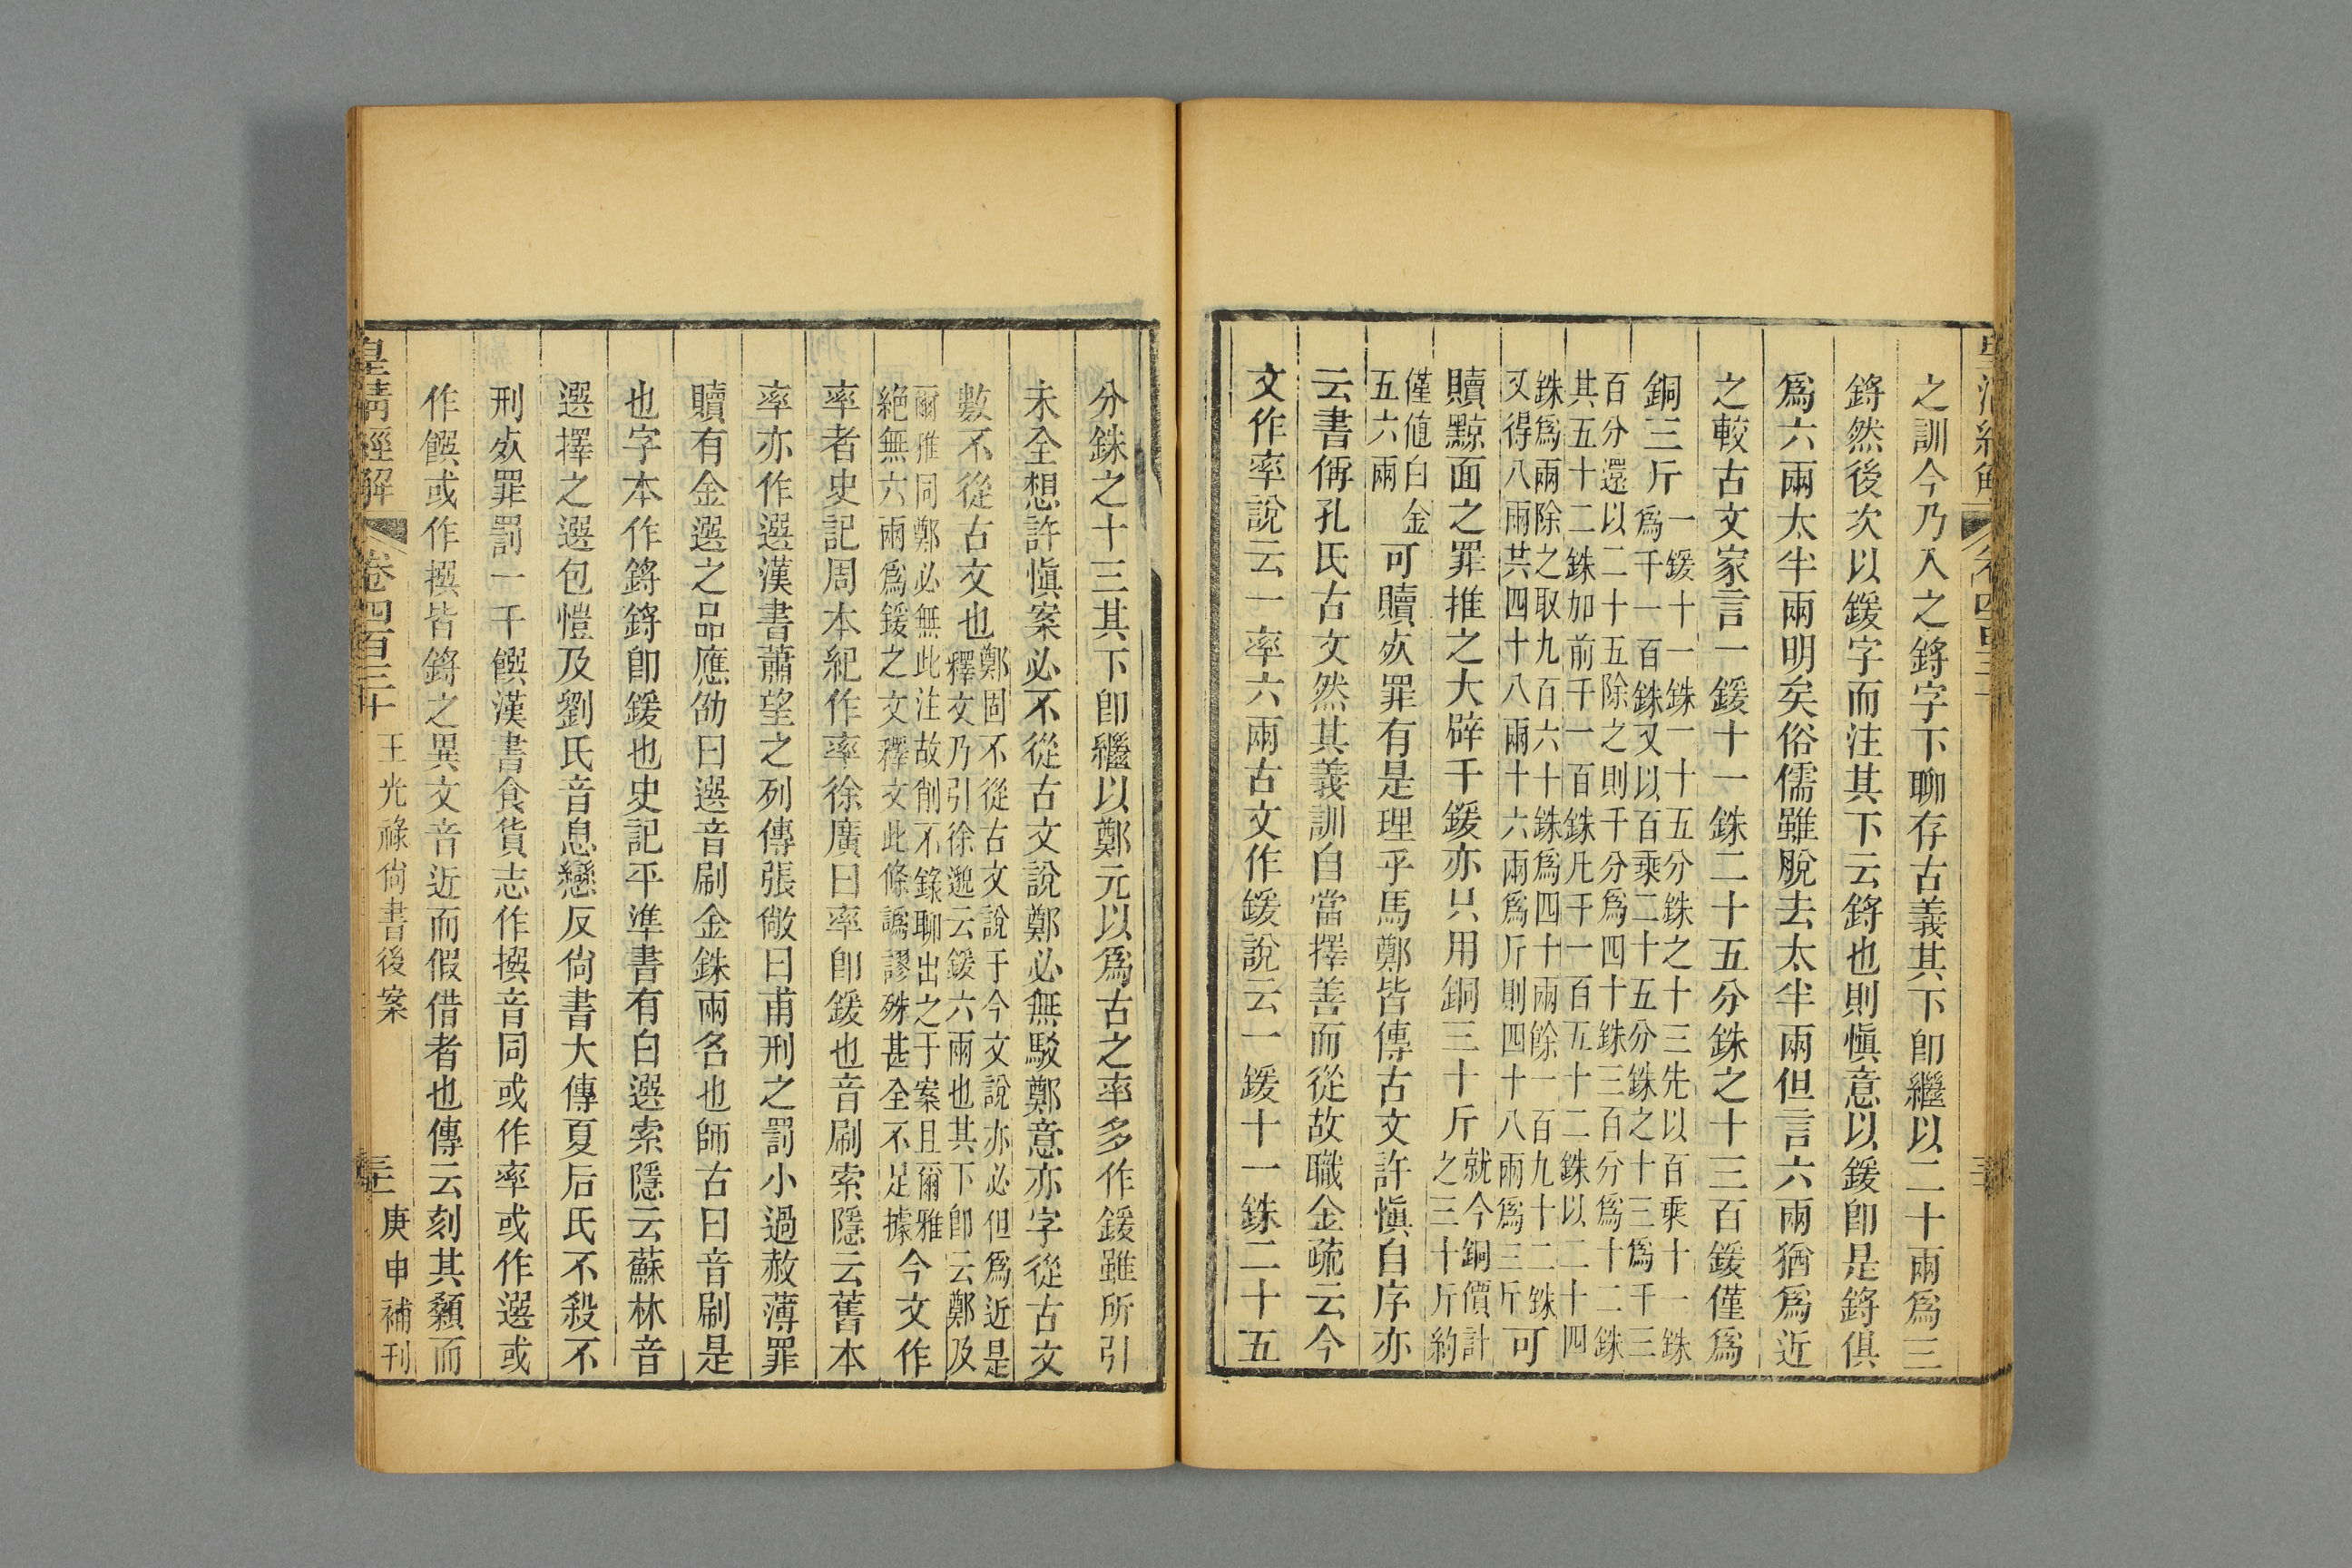 之訓今乃入之鋝字下聊存古義其下卽繼以二十兩爲三
鋝然後次以鍰字而注其下云鋝也則愼意以鍰卽是鋝俱
爲六兩太半兩明矣俗儒雖脫去太半兩但言六兩猶爲近
之較古文家言一鍰十一銖二十五分銖之十三百鍰僅爲
銅三斤
一鍰十一銖一十五分銖之十三先以百乘十一銖
爲千一百銖又以百乘二十五分銖之十三爲千三
百分還以二十五除之則千分爲四十銖三百分爲十二銖
其五十二銖加前千一百銖凡千一百五十二銖以二十四
銖爲兩除之取九百六十銖爲四十兩餘一百九十二銖
又得八兩共四十八兩十六兩爲斤則四十八兩爲三斤
可
贖黥面之罪推之大辟千鍰亦只用銅三十斤
就今銅價計
之三十斤約
僅値白金
五六兩
可贖死罪有是理乎馬鄭皆傳古文許愼自序亦
云書偁孔氏古文然其義訓自當擇善而從故職金疏云今
文作率說云一率六兩古文作鍰說云一鍰十一銖二十五
分銖之十三其下卽繼以鄭元以爲古之率多作鍰雖所引
未全想許愼案必不從古文說鄭必無駁鄭意亦字從古文
數不從古文也
鄭固不從古文說于今文說亦必但爲近是
釋文乃引徐邈云鍰六兩也其下卽云鄭及
爾雅同鄭必無此注故削不錄聊出之于案且爾雅
絶無六兩爲鍰之文釋文此條譌謬殊甚全不足據
今文作
率者史記周本紀作率徐廣曰率卽鍰也音刷索隱云舊本
率亦作選漢書蕭望之列傳張敞曰甫刑之罰小過赦薄罪
贖有金選之品應劭曰選音刷金銖兩名也師古曰音刷是
也字本作鋝鋝卽鍰也史記平準書有白選索隱云蘇林音
選擇之選包愷及劉氏音息戀反尙書大傳夏后氏不殺不
刑死罪罰一千饌漢書食貨志作撰音同或作率或作選或
作饌或作撰皆鋝之異文音近而假借者也傳云刻其顙而
皇清經解
卷四百三十
王光祿尙書後案
庚申補刊